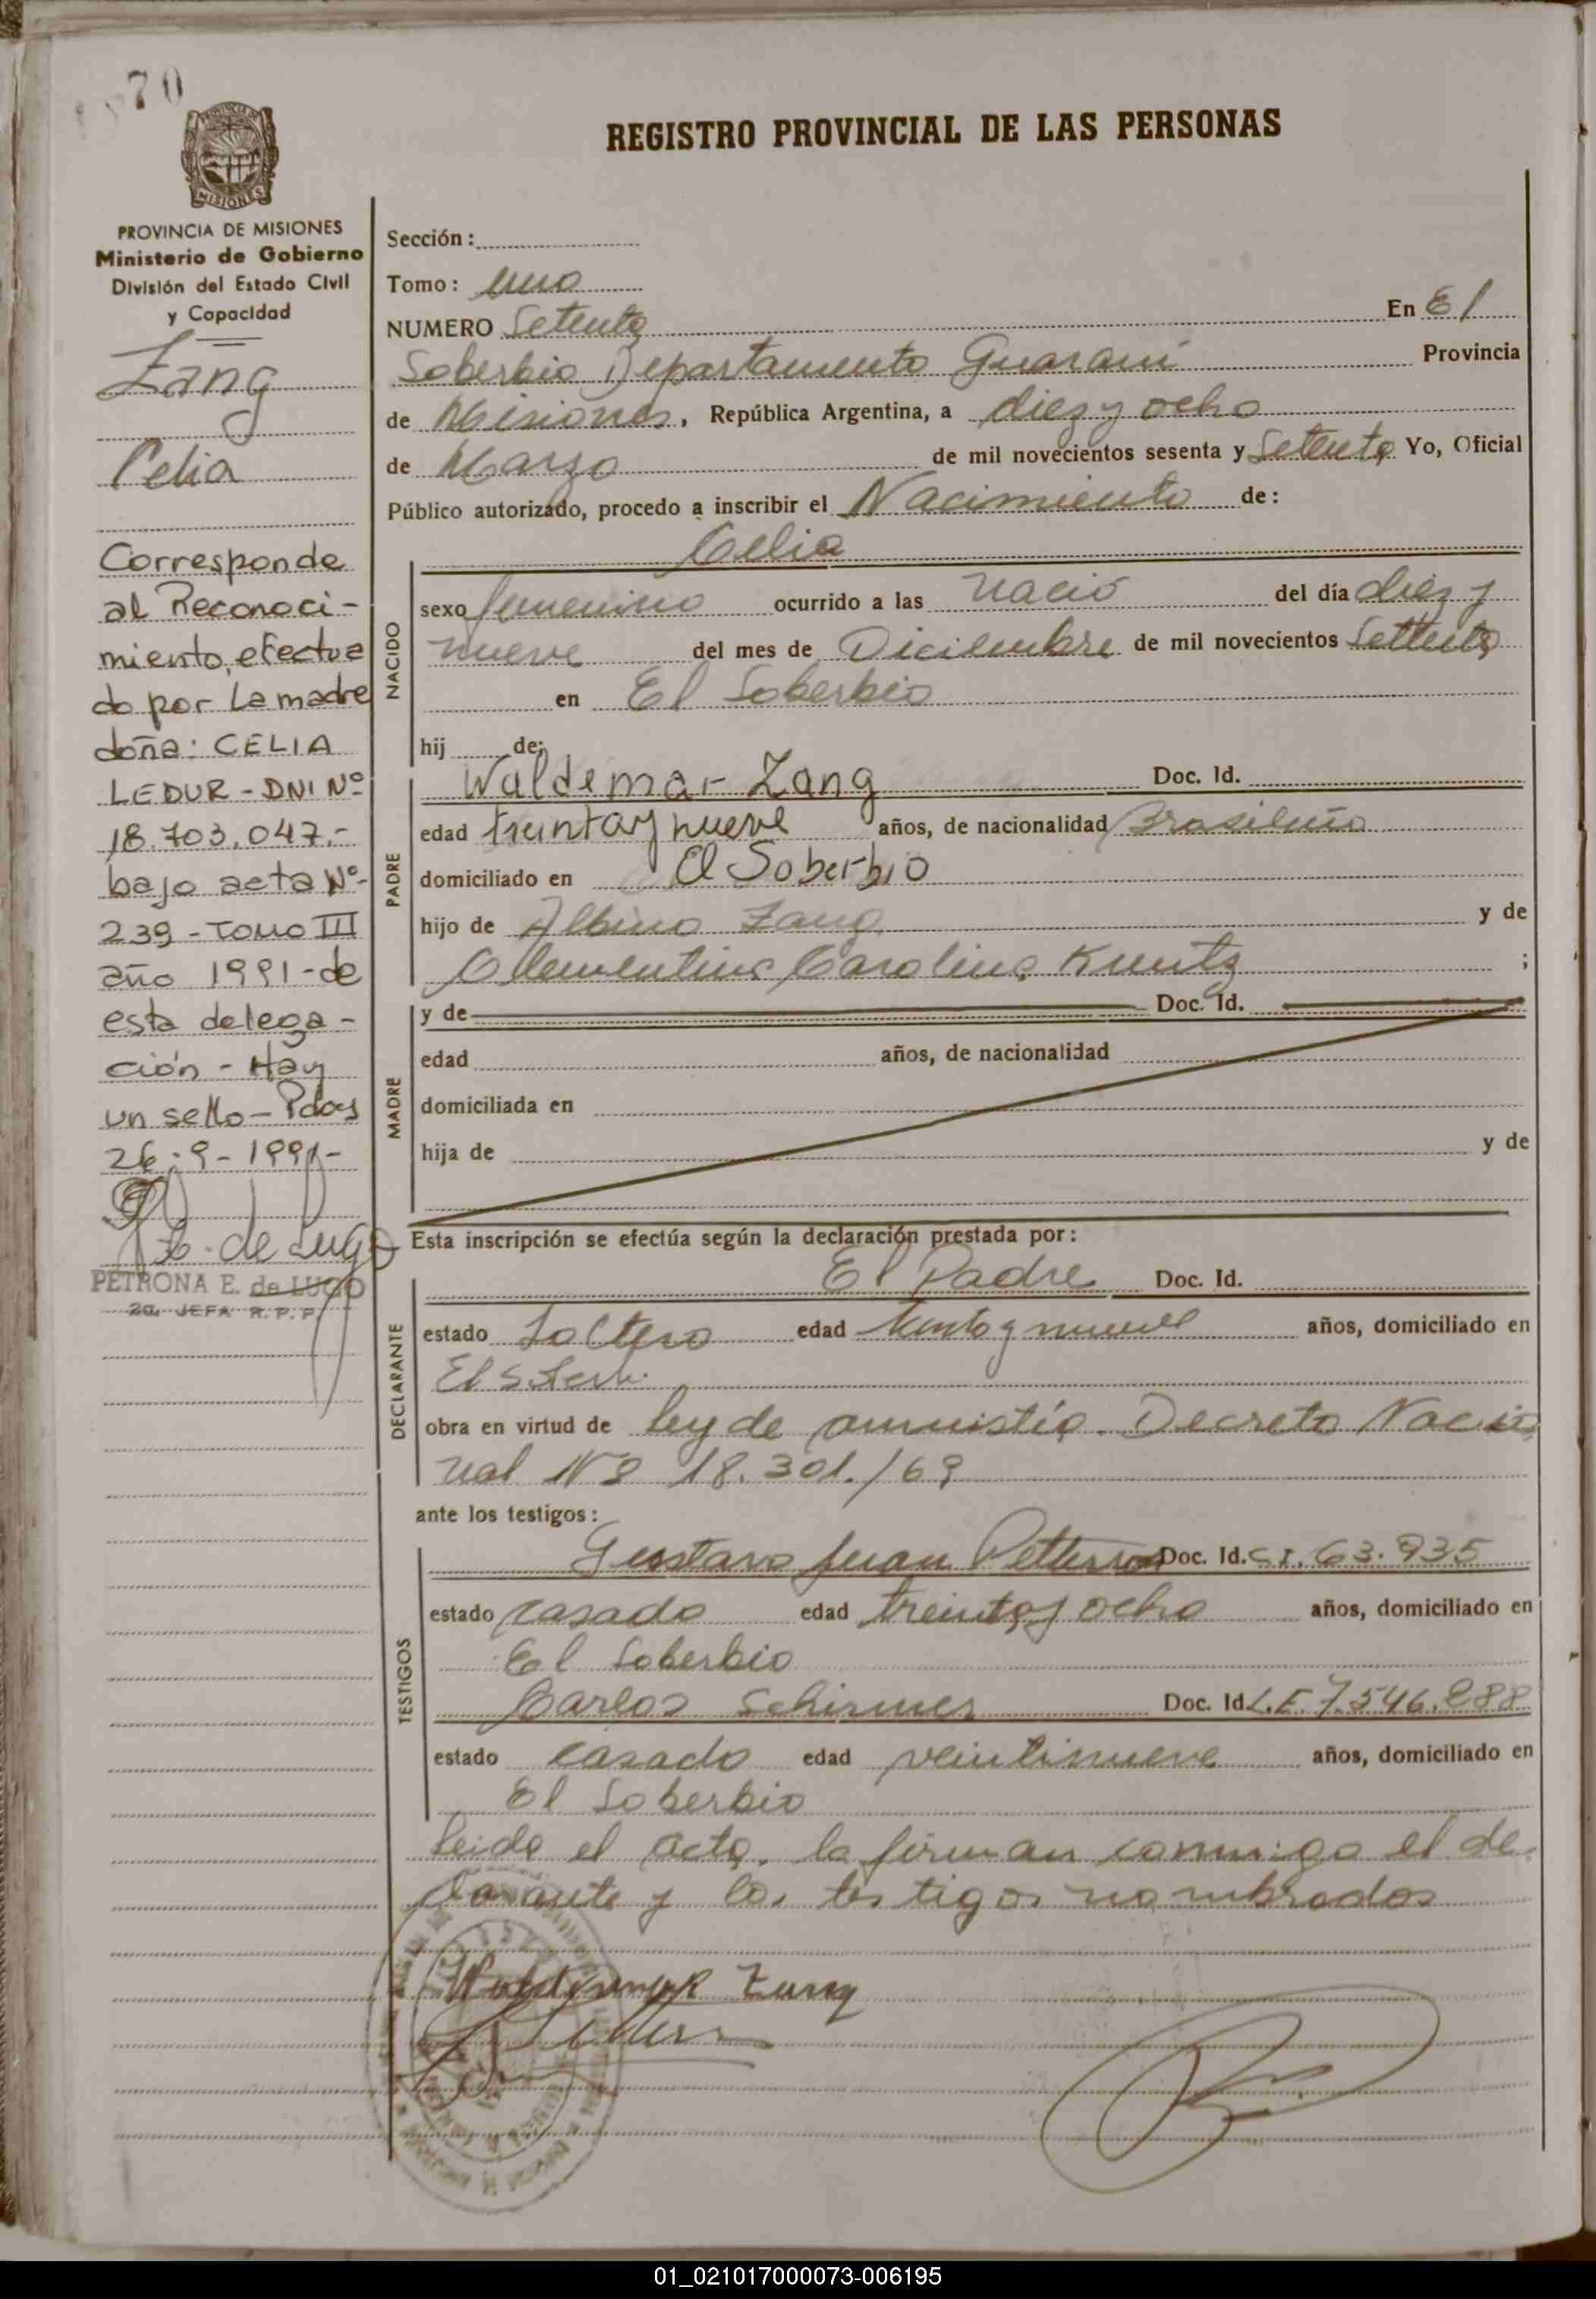 70
REGISTRO PROVINCIAL DE LAS PERSONAS
PROVINCIA DE MISIONES
Ministerio de Gobierno
División del Estado Civil
y Capacidad
Zang
Celia
Corresponde
al Reconoci-
miento efectua
do por la madre
doña: CELIA
LEDUR - DNI Nº
18.703.047.-
bajo acta Nº-
239 - TOMO III
año 1991 - de
esta delega-
ción - Hay
un sello - Pdas
26-9-1991-
de Lugo
PETRONA E. de LUGO
2a. JEFA R.P.P.
Sección:
Tomo: uno
NUMERO Setenta En El
Soberbio Departamento Guaraní Provincia
de Misiones, República Argentina, a diez y ocho
de Marzo de mil novecientos sesenta y Setenta Yo, Oficial
Público autorizado, procedo a inscribir el Nacimiento de:
Celia
NACIDO
sexo femenino ocurrido a las nació del día diez y
nueve del mes de Diciembre de mil novecientos Setenta
en El Soberbio
hij de:
PADRE
Waldemar Zang Doc. Id.
edad treinta y nueve años, de nacionalidad Brasileño
domiciliado en El Soberbio
hijo de Albino Zang y de
Clementina Carolina Kuntz ;
MADRE
y de Doc. Id.
edad años, de nacionalidad
domiciliada en
hija de y de
Esta inscripción se efectúa según la declaración prestada por:
DECLARANTE
El Padre Doc. Id.
estado Soltero edad treinta y nueve años, domiciliado en
El Soberb.
obra en virtud de ley de amnistía. Decreto Nacio
nal Nº 18.301./69
ante los testigos:
TESTIGOS
Gustavo Juan Petterson Doc. Id. C.I. 63.935
estado casado edad treinta y ocho años, domiciliado en
El Soberbio
Carlos Schirmer Doc. Id. L.E. 7.546.288
estado casado edad veintinueve años, domiciliado en
El Soberbio
leida el acta. la firman conmigo el de
clarante y los testigos nombrados
Waldemar Zang
01_021017000073-006195